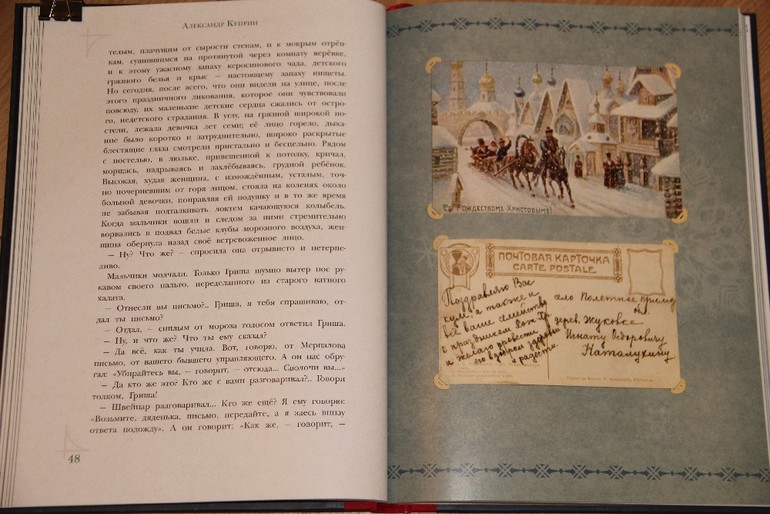 Александр Куприн
телым, плачущим от сырости стенам, и к мокрым отреп-
кам, сушившимся на протянутой через комнату верёвке,
и к этому ужасному запаху керосинового чада, детского
грязного белья и крыс — настоящему запаху нищеты.
Но сегодня, после всего, что они видели на улице, после
этого праздничного ликования, которое они чувствовали
повсюду, их маленькие детские сердца сжались от остро-
го, недетского страдания. В углу, на грязной широкой по-
стели, лежала девочка лет семи; её лицо горело, дыха-
ние было коротко и затруднительно, широко раскрытые
блестящие глаза смотрели пристально и бесцельно. Рядом
с постелью, в люльке, привешенной к потолку, кричал,
морщась, надрываясь и захлёбываясь, грудной ребёнок.
Высокая, худая женщина, с измождённым, усталым, точ-
но почерневшим от горя лицом, стояла на коленях около
больной девочки, поправляя ей подушку и в то же время
не забывая подталкивать локтем качающуюся колыбель.
Когда мальчики вошли и следом за ними стремительно
ворвались в подвал белые клубы морозного воздуха, жен-
щина обернула назад своё встревоженное лицо.
— Ну? Что же? — спросила она отрывисто и нетерпе-
ливо.
Мальчики молчали. Только Гриша шумно вытер нос ру-
кавом своего пальто, переделанного из старого ватного
халата.
— Отнесли вы письмо?.. Гриша, я тебя спрашиваю, от-
дал ты письмо?
— Отдал, — сиплым от мороза голосом ответил Гриша.
— Ну, и что же? Что ты ему сказал?
— Да всё, как ты учила. Вот, говорю, от Мерцалова
письмо, от вашего бывшего управляющего. А он нас обру-
гал: «Убирайтесь вы, — говорит, — отсюда... Сволочи вы...»
— Да кто же это? Кто же с вами разговаривал?.. Говори
толком, Гриша!
— Швейцар разговаривал... Кто же ещё? Я ему говорю:
«Возьмите, дяденька, письмо, передайте, а я здесь внизу
ответа подожду». А он говорит: «Как же, — говорит, —
48
Съ Рождествомъ Христовымъ!
ПОЧТОВАЯ КАРТОЧКА
CARTE POSTALE
Поздравляю Вас
кум, а также и
всё ваше семейство
с праздником Рож. Хр.
и желаю провести
во здоровье
и радости.
село Полетное
дерев. Жуковке
Игнату Федоровичу